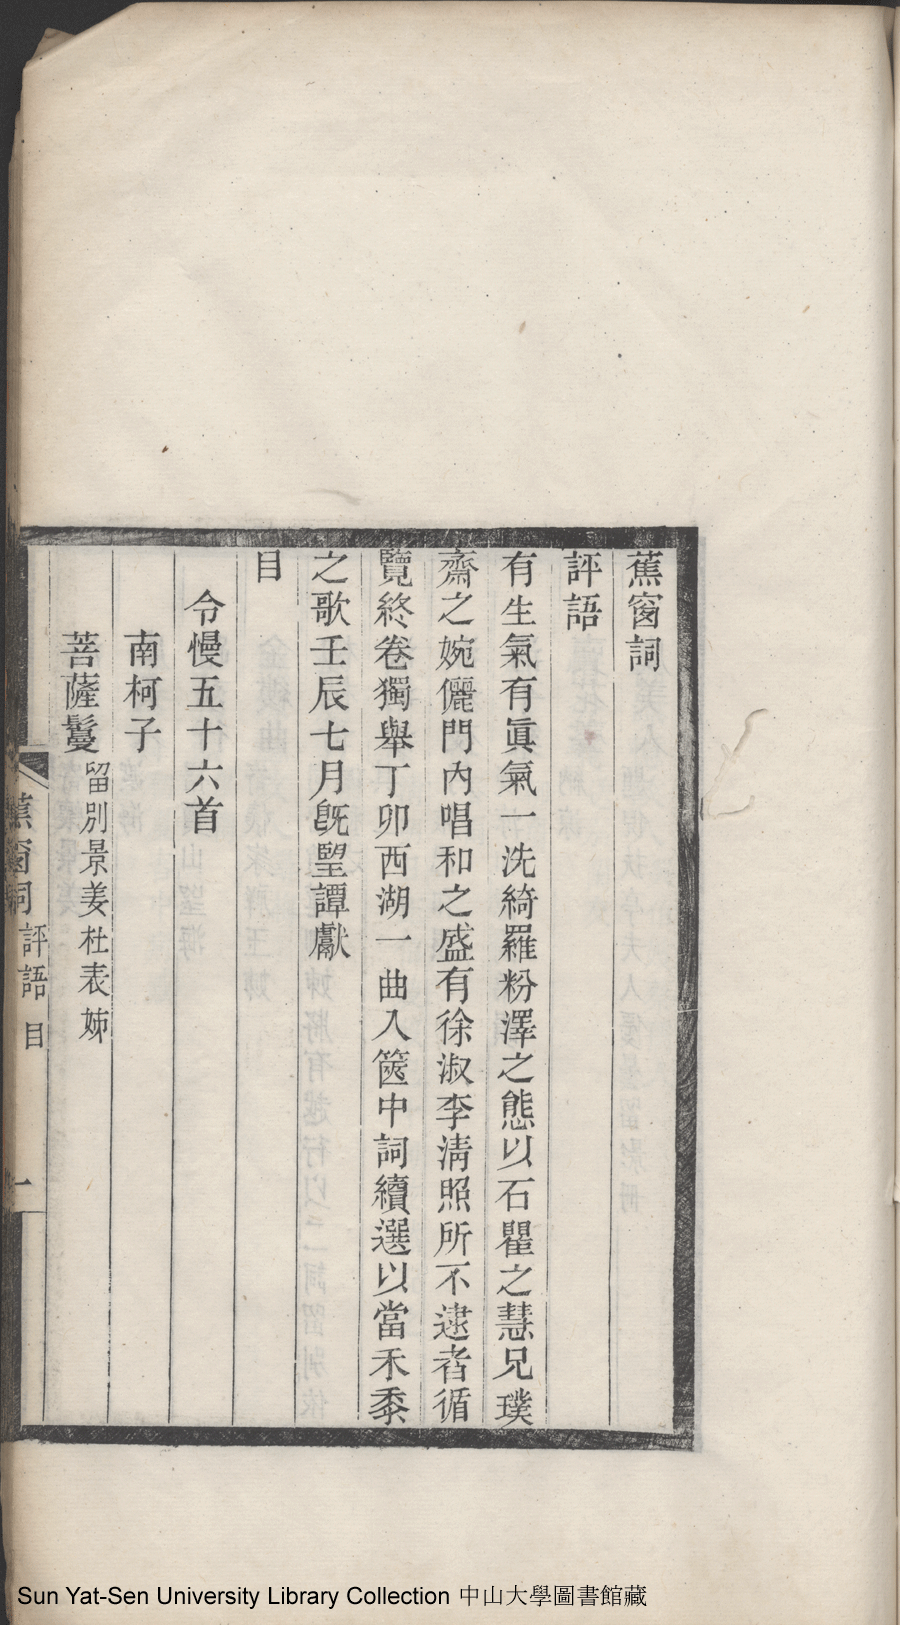 蕉窗詞
評語
有生氣有眞氣一洗綺羅粉澤之態以石瞿之慧兄璞
齋之婉儷門內唱和之盛有徐淑李淸照所不逮者循
覽終卷獨舉丁卯西湖一曲入篋中詞續選以當禾黍
之歌壬辰七月旣朢譚獻
目
令慢五十六首
南柯子
菩薩鬘留別景姜杜表姊
蕉窗詞 評語 目 一
Sun Yat-Sen University Library Collection 中山大學圖書館藏